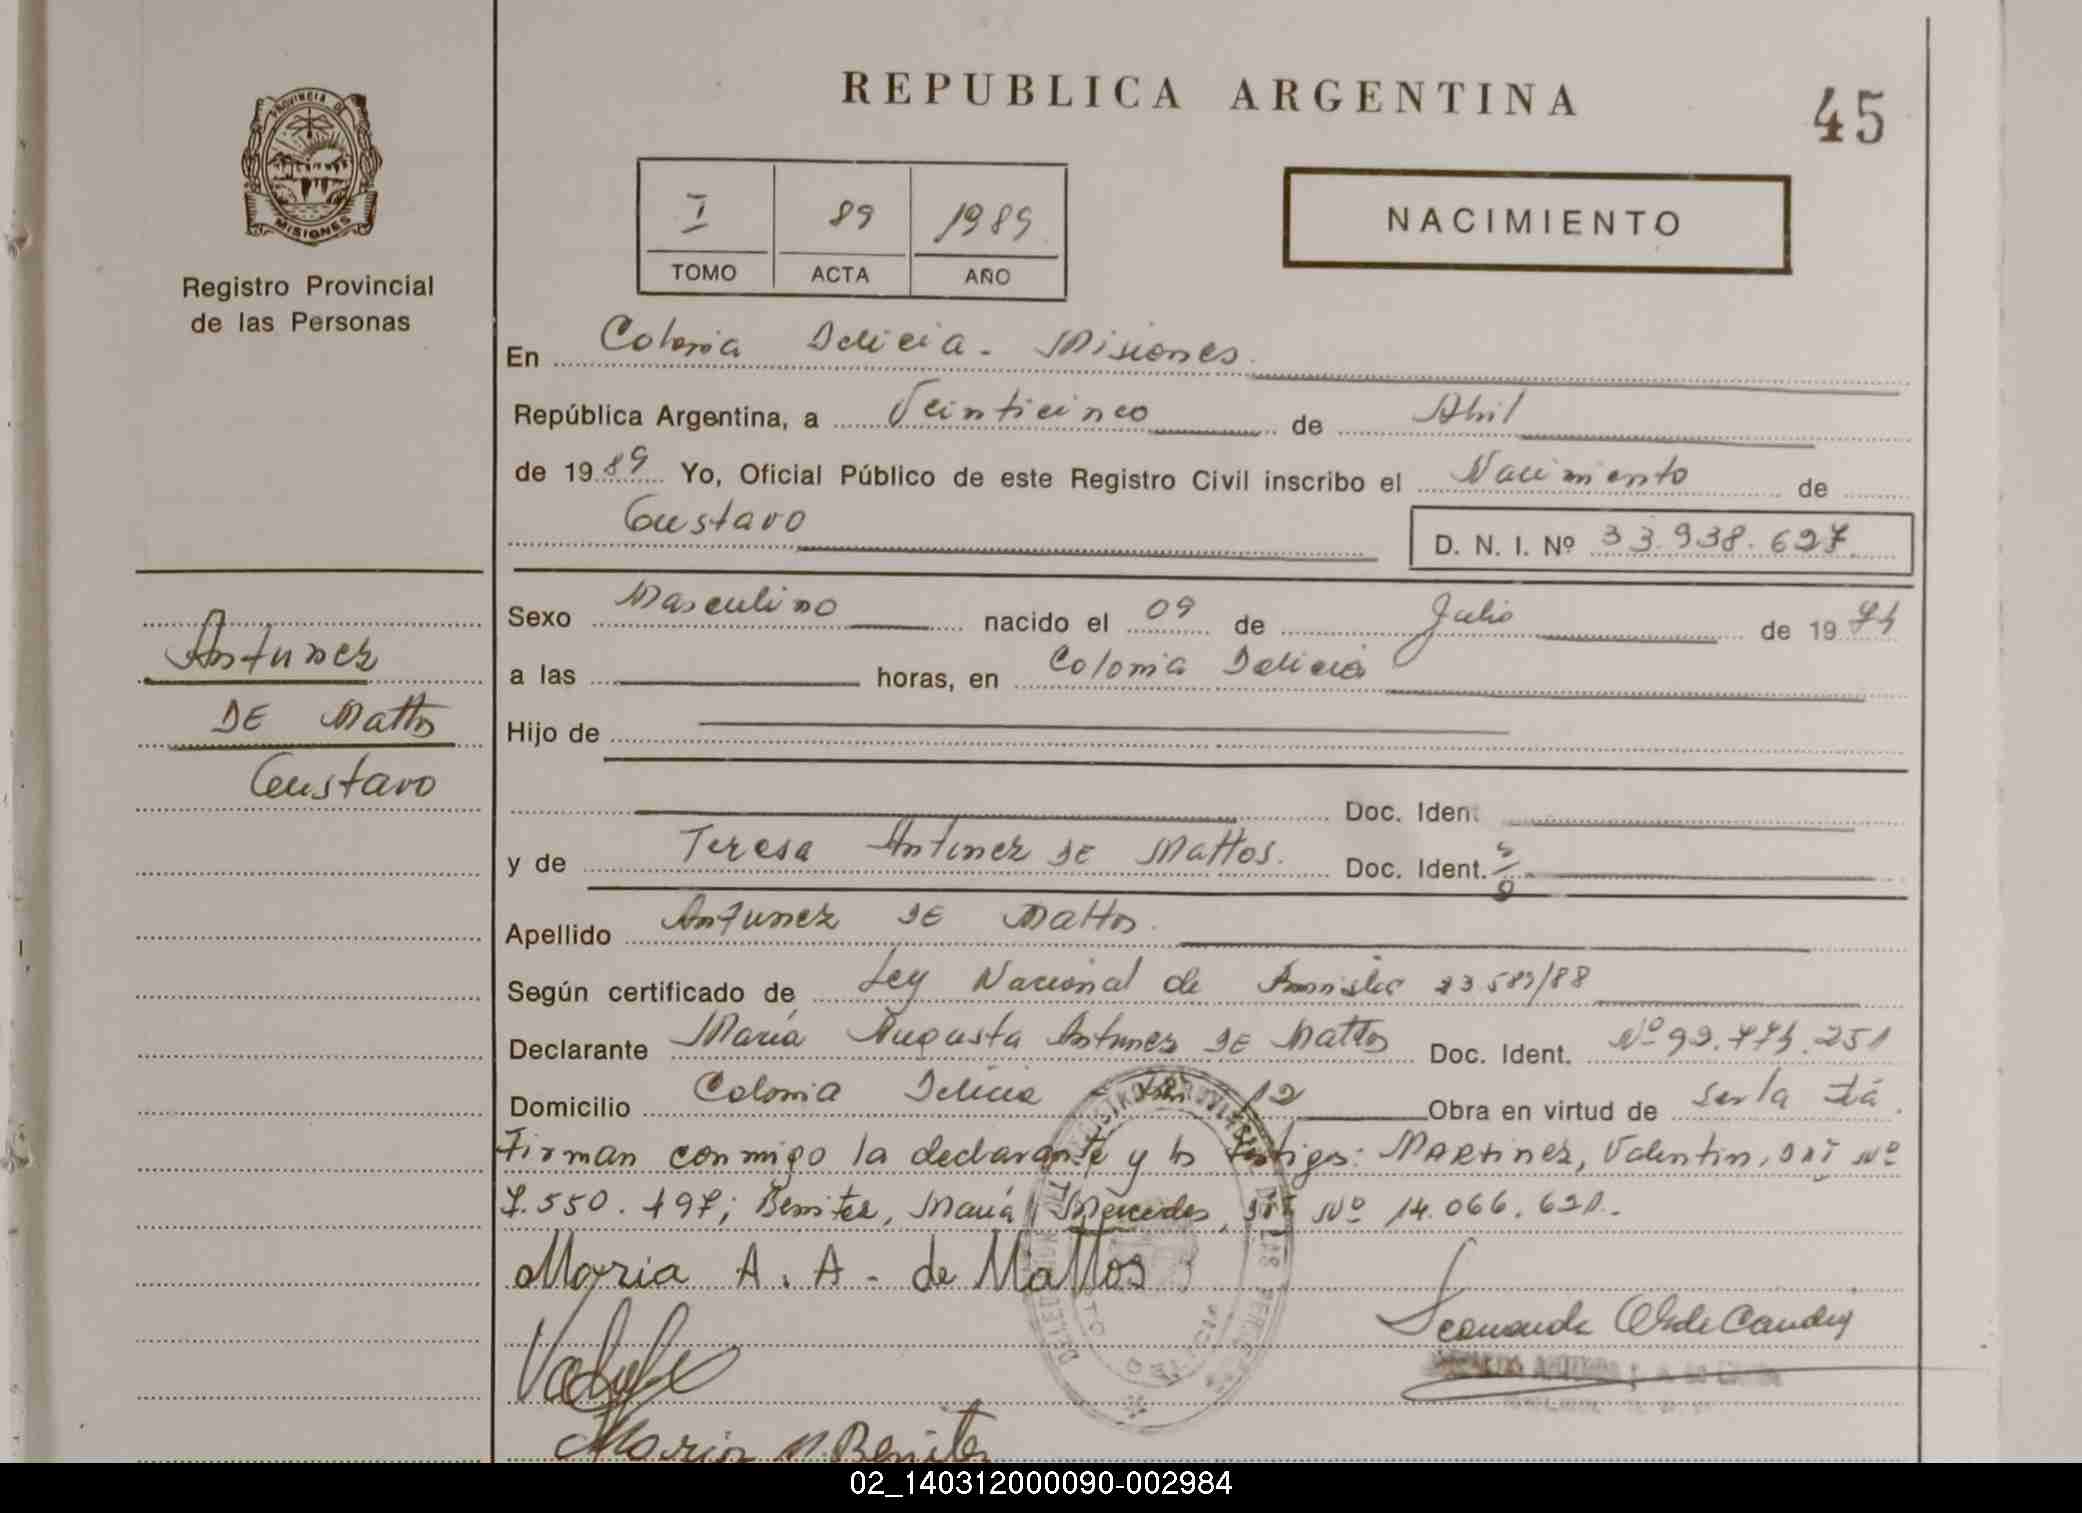 REPUBLICA ARGENTINA
45
PROVINCIA DE
MISIONES
Registro Provincial
de las Personas
I 89 1989
TOMO ACTA AÑO
NACIMIENTO
En Colonia Delicia - Misiones
República Argentina, a Veinticinco de Abril
de 1989 Yo, Oficial Público de este Registro Civil inscribo el Nacimiento de
Gustavo
D. N. I. Nº 33.938.627
Antunez
DE Mattos
Gustavo
Sexo Masculino nacido el 09 de Julio de 1974
a las horas, en Colonia Delicia
Hijo de
Doc. Ident
y de Teresa Antunez DE Mattos. Doc. Ident. S/D
Apellido Antunez DE Mattos.
Según certificado de Ley Nacional de Amnistia 23582/88
Declarante María Augusta Antunez DE Mattos Doc. Ident. Nº 92.774.251
Domicilio Colonia Delicia - Km 12 Obra en virtud de ser la tía.
Firman conmigo la declarante y los testigos: MARtinez, Valentin, DNI Nº
7.550.197; Benitez, María Mercedes, DNI Nº 14.066.621.
Maria A. A. de Mattos
Maria M. Benitez
02_140312000090-002984